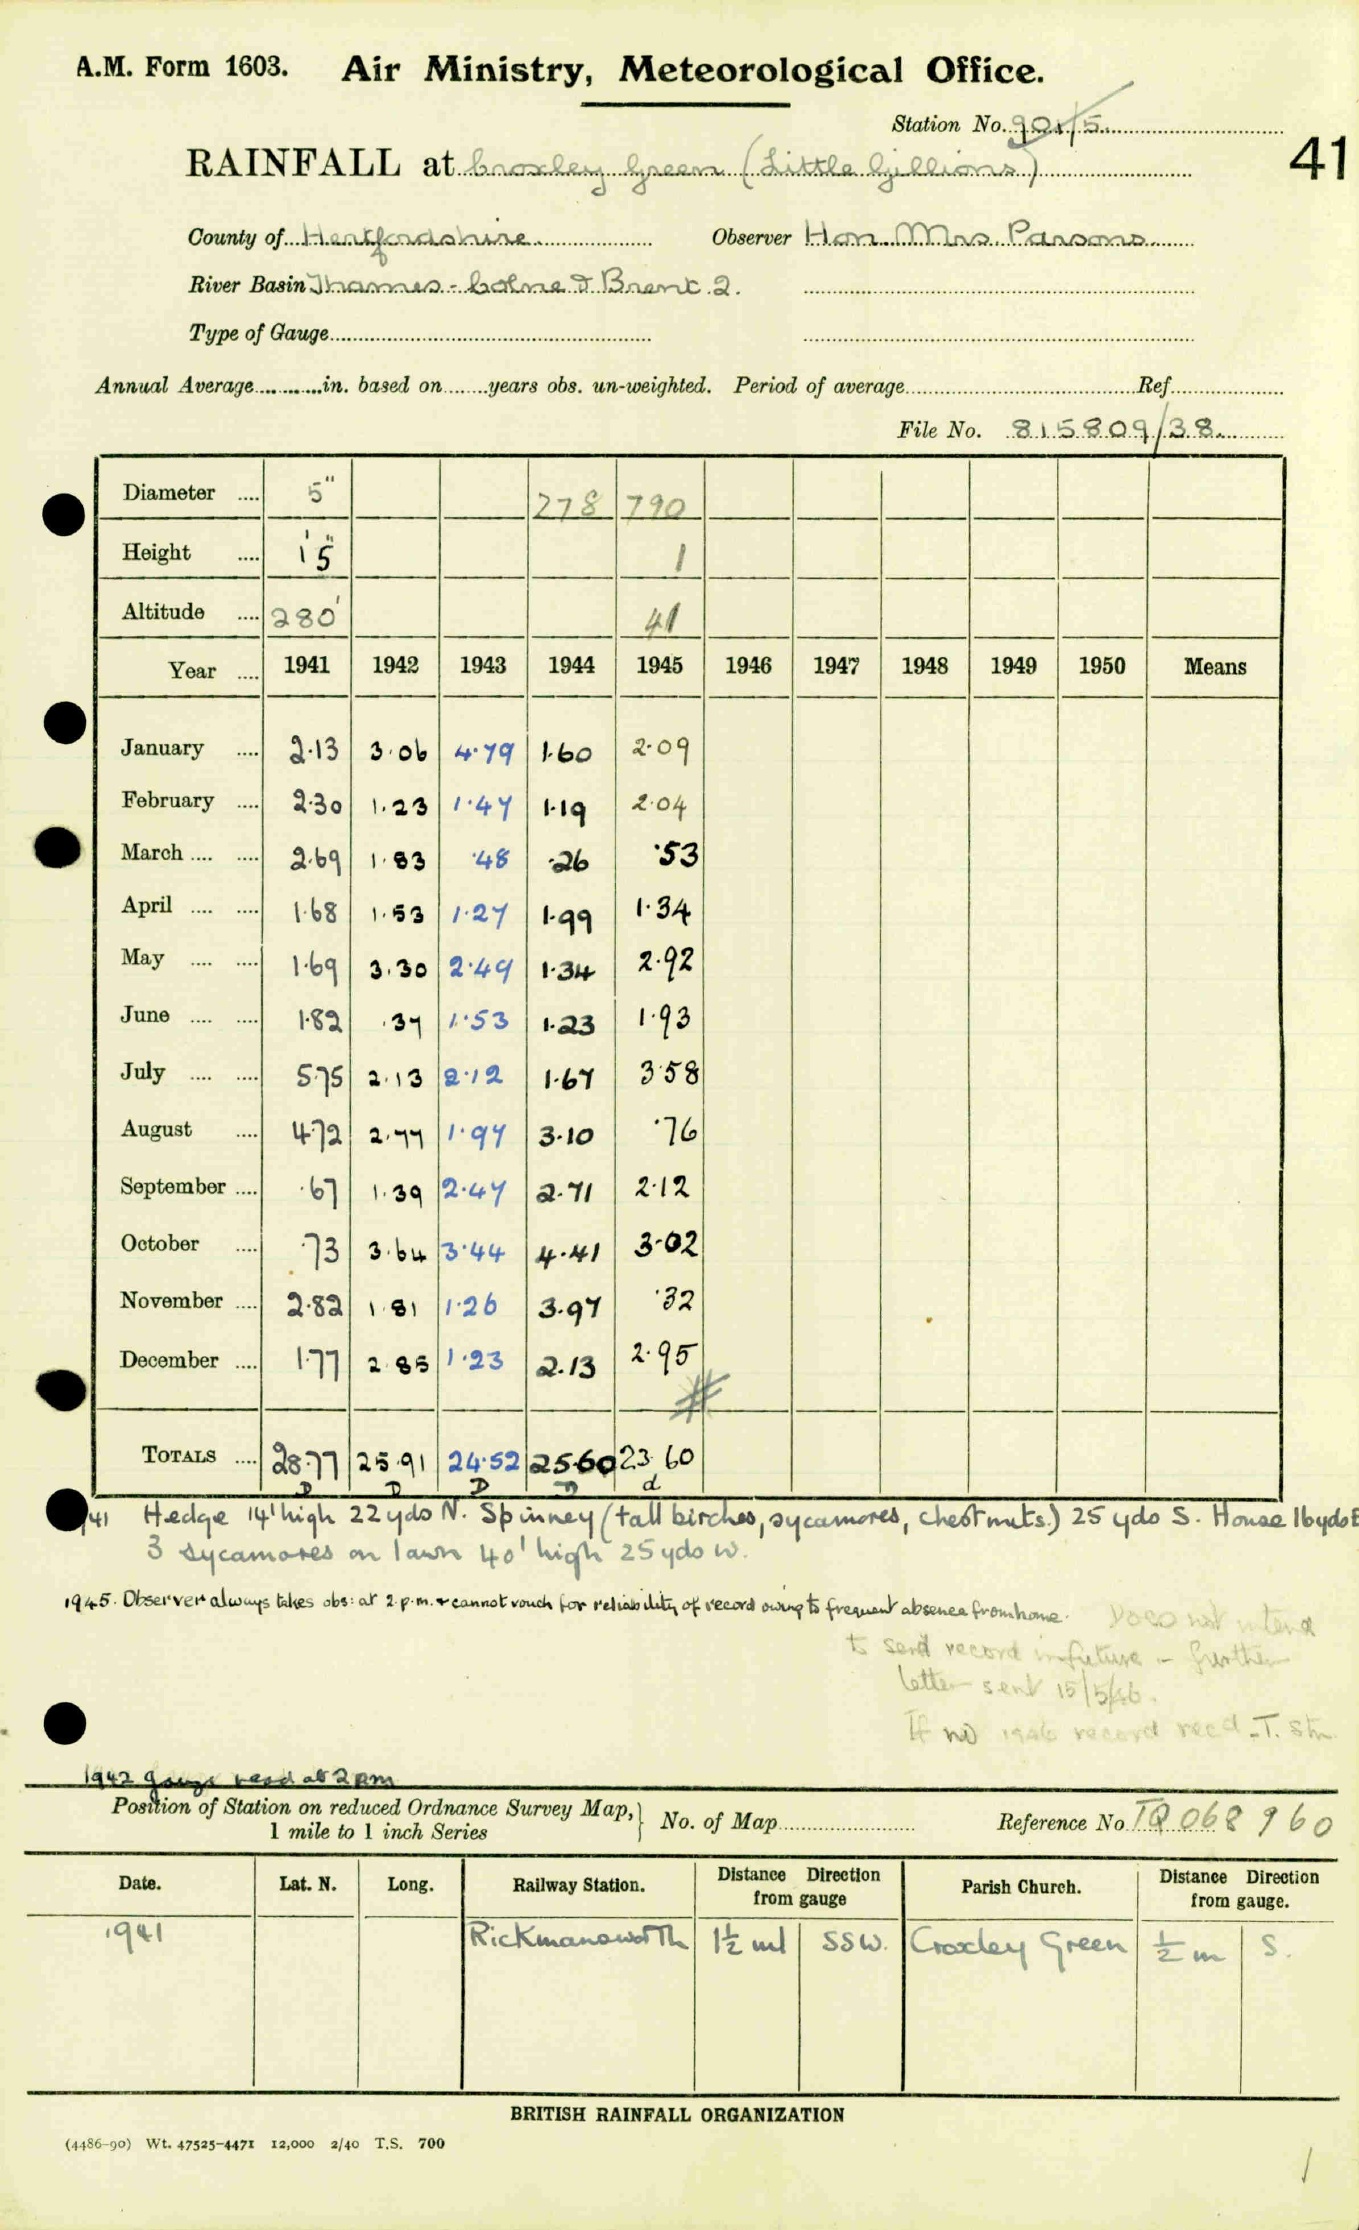 A.M. Form 1603. Air Ministry, Meteorological Office.
Station No. 901/5
41
RAINFALL at Croxley Green (Little Gillions)
County of Hertfordshire Observer Hon. Mrs. Parsons
River Basin Thames - Colne & Brent 2.
Type of Gauge
Annual Average in. based on years obs. un-weighted. Period of average Ref.
File No. 815809/38
Diameter 5" 278 790
Height 1' 5" 1
Altitude 280' 41
Year 1941 1942 1943 1944 1945 1946 1947 1948 1949 1950 Means
January 2.13 3.06 4.79 1.60 2.09
February 2.30 1.23 1.47 1.19 2.04
March 2.69 1.83 .48 .26 .53
April 1.68 1.53 1.27 1.99 1.34
May 1.69 3.30 2.49 1.34 2.92
June 1.82 .37 1.53 1.23 1.93
July 5.75 2.13 2.12 1.67 3.58
August 4.72 2.77 1.97 3.10 .76
September .67 1.39 2.47 2.71 2.12
October .73 3.64 3.44 4.41 3.02
November 2.82 1.81 1.26 3.97 .32
December 1.77 2.85 1.23 2.13 2.95
#
TOTALS 28.77 25.91 24.52 25.60 23.60
D D D D d
/41 Hedge 14' high 22 yds N. Spinney (tall birches, sycamores, chestnuts.) 25 yds S. House 16 yds E
3 sycamores on lawn 40' high 25 yds W.
1945. Observer always takes obs: at 2.p.m. & cannot vouch for reliability of record owing to frequent absence from home. Does not intend
to send record in future - further
letter sent 15/5/46.
If no 1946 record recd - T. Stn
1942 gauge read at 2 pm
Position of Station on reduced Ordnance Survey Map, 1 mile to 1 inch Series No. of Map Reference No. TQ 068 960
Date. Lat. N. Long. Railway Station. Distance Direction from gauge Parish Church. Distance Direction from gauge.
1941 Rickmansworth 1½ ml SSW. Croxley Green ½ m S.
BRITISH RAINFALL ORGANIZATION
(4486-90) Wt. 47525-4471 12,000 2/40 T.S. 700